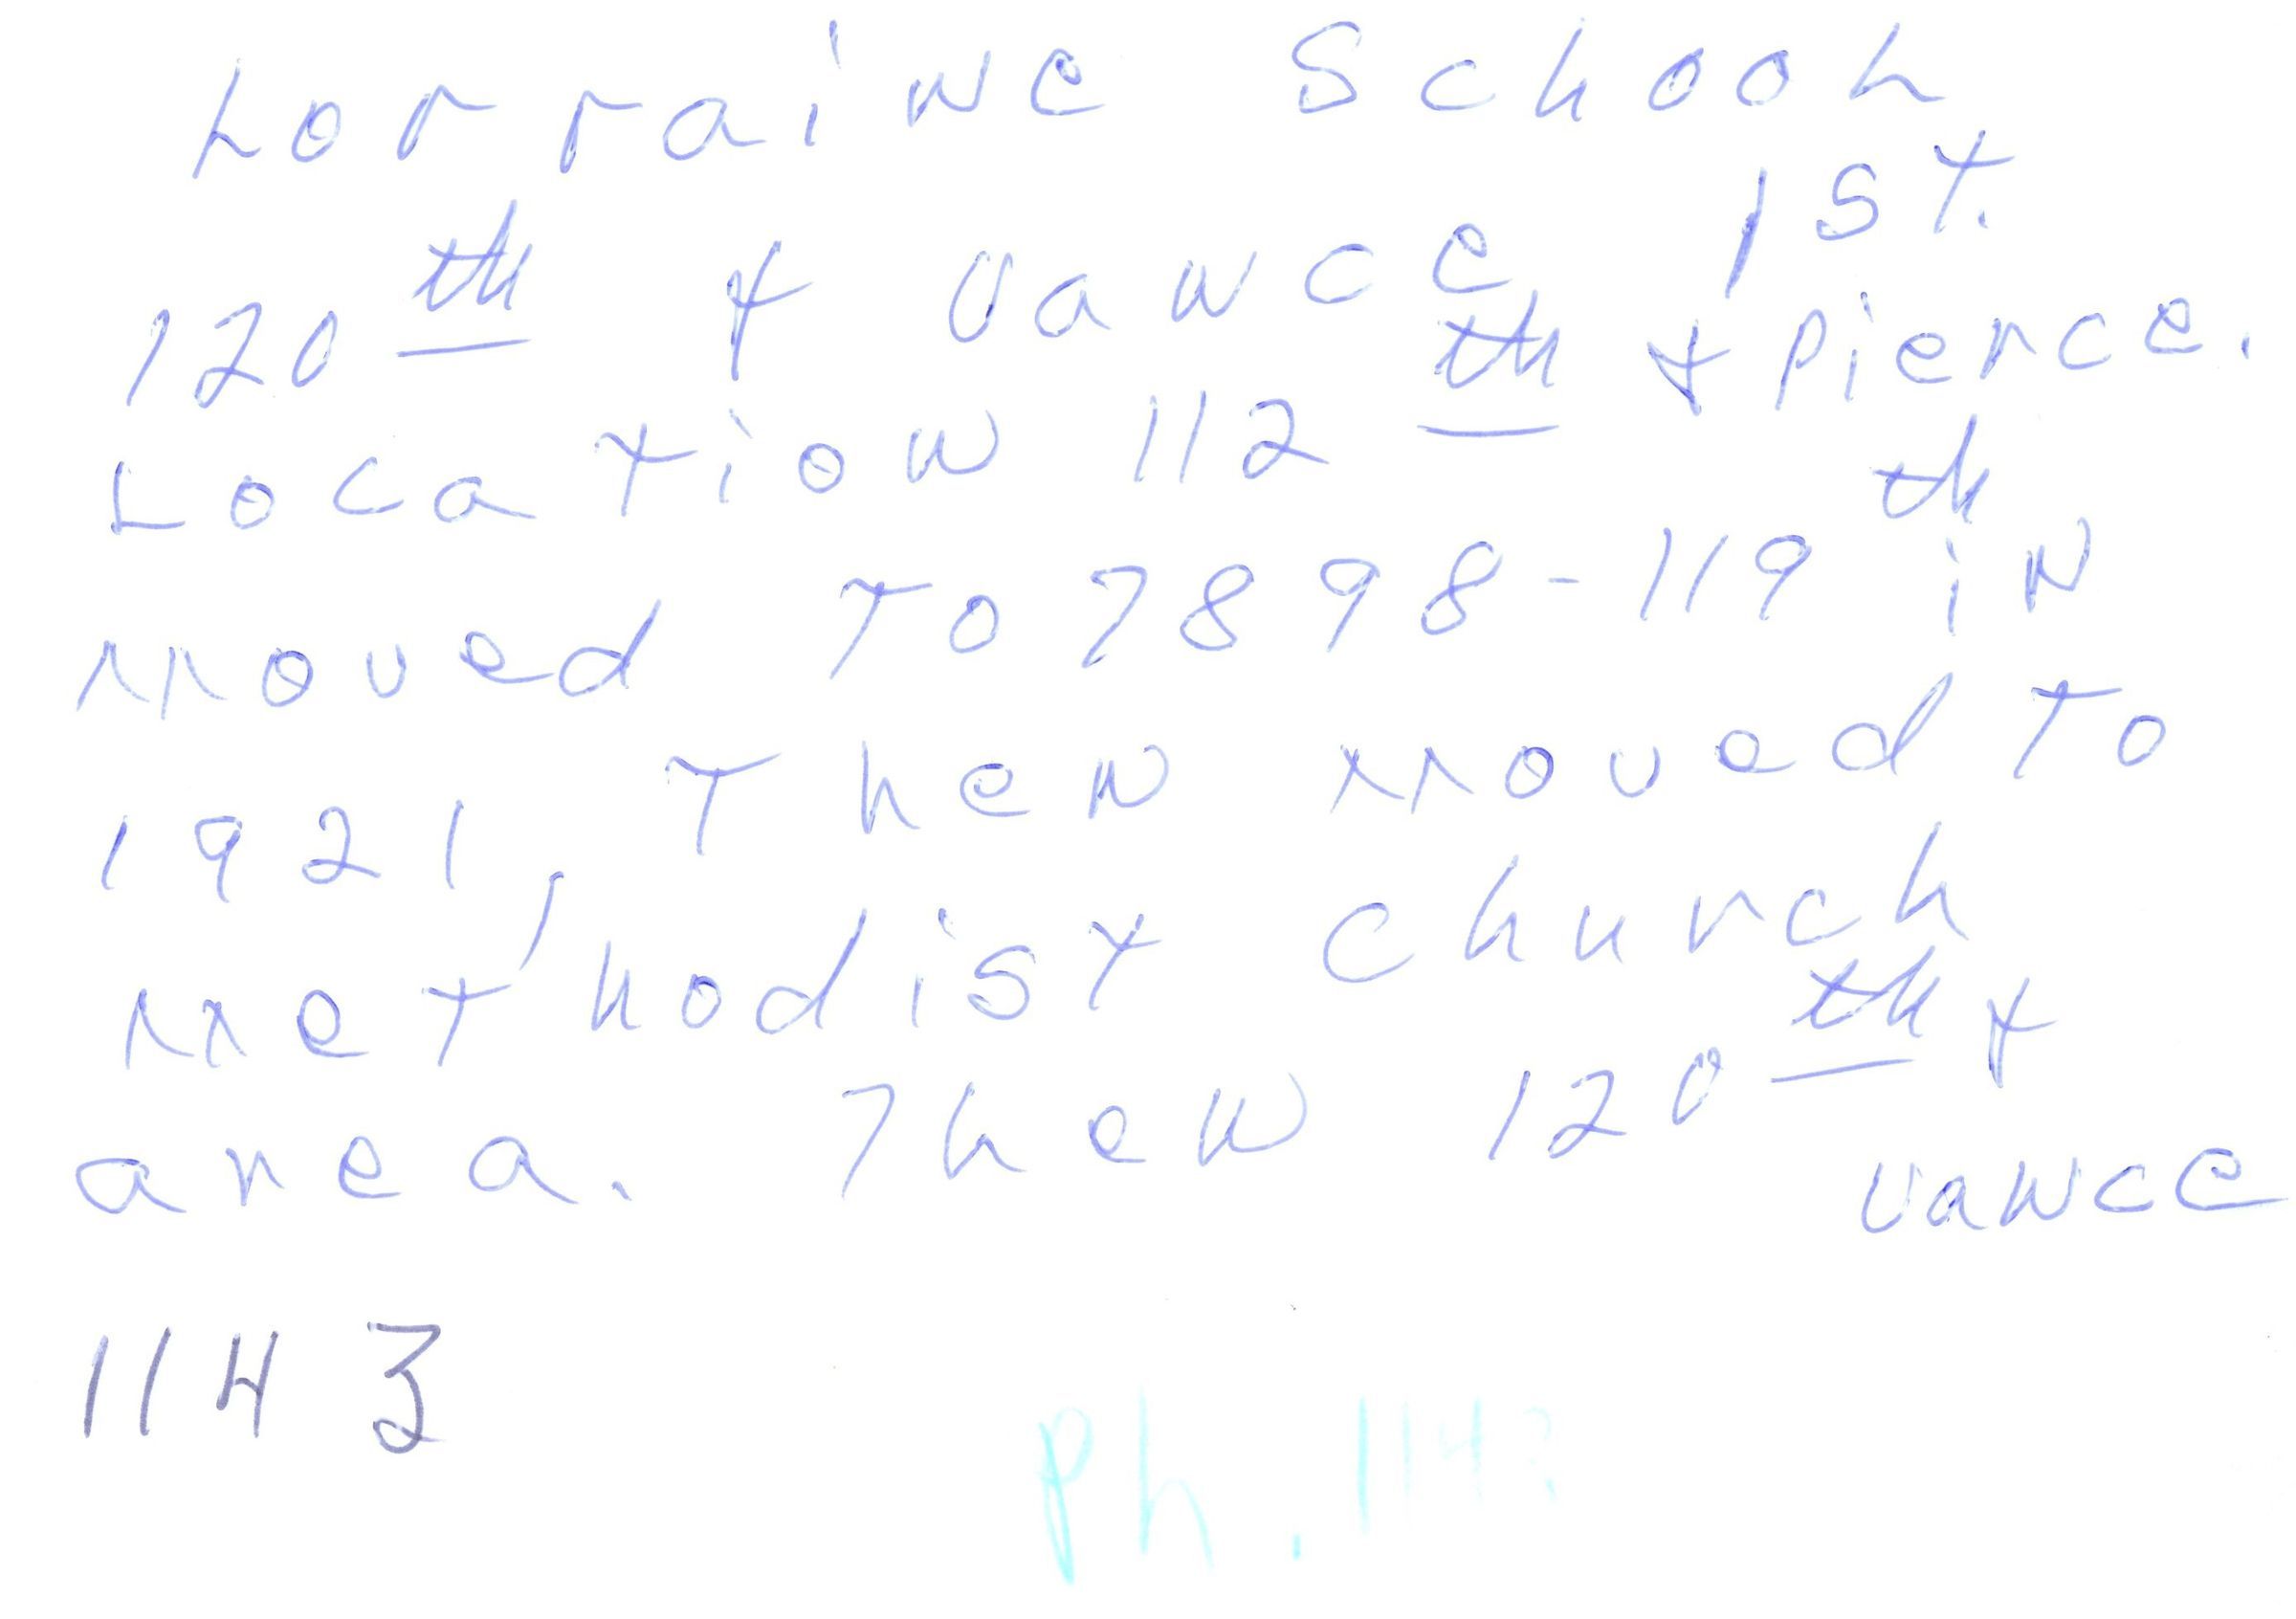 Lorraine School
120th & Vance 1st.
Location 112th & Pierce.
Moved To 7898-119th in
1921, Then Moved To
Methodist Church
area. Then 120th &
Vance
1143
Ph. 1143